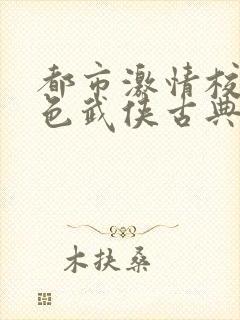 都市激情校
色武侠古典
木扶桑